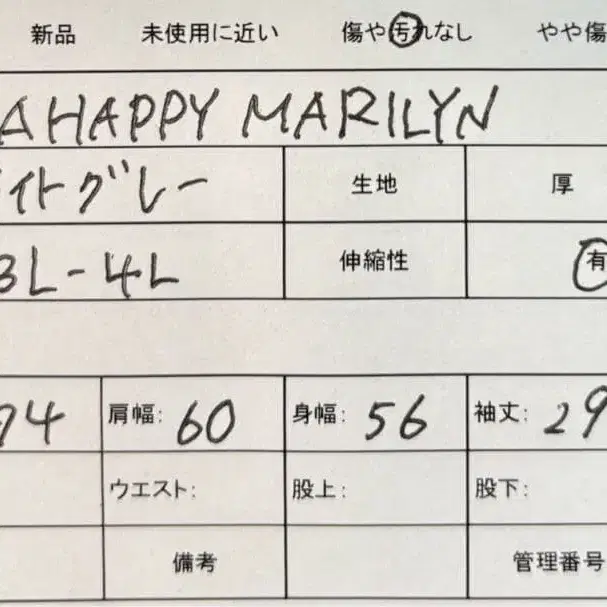 新品 未使用に近い 傷や汚れなし やや傷
AHAPPY MARILYN
イトグレー 生地 厚
3L-4L 伸縮性 有
74 肩幅: 60 身幅: 56 袖丈: 29
ウエスト: 股上: 股下:
備考 管理番号